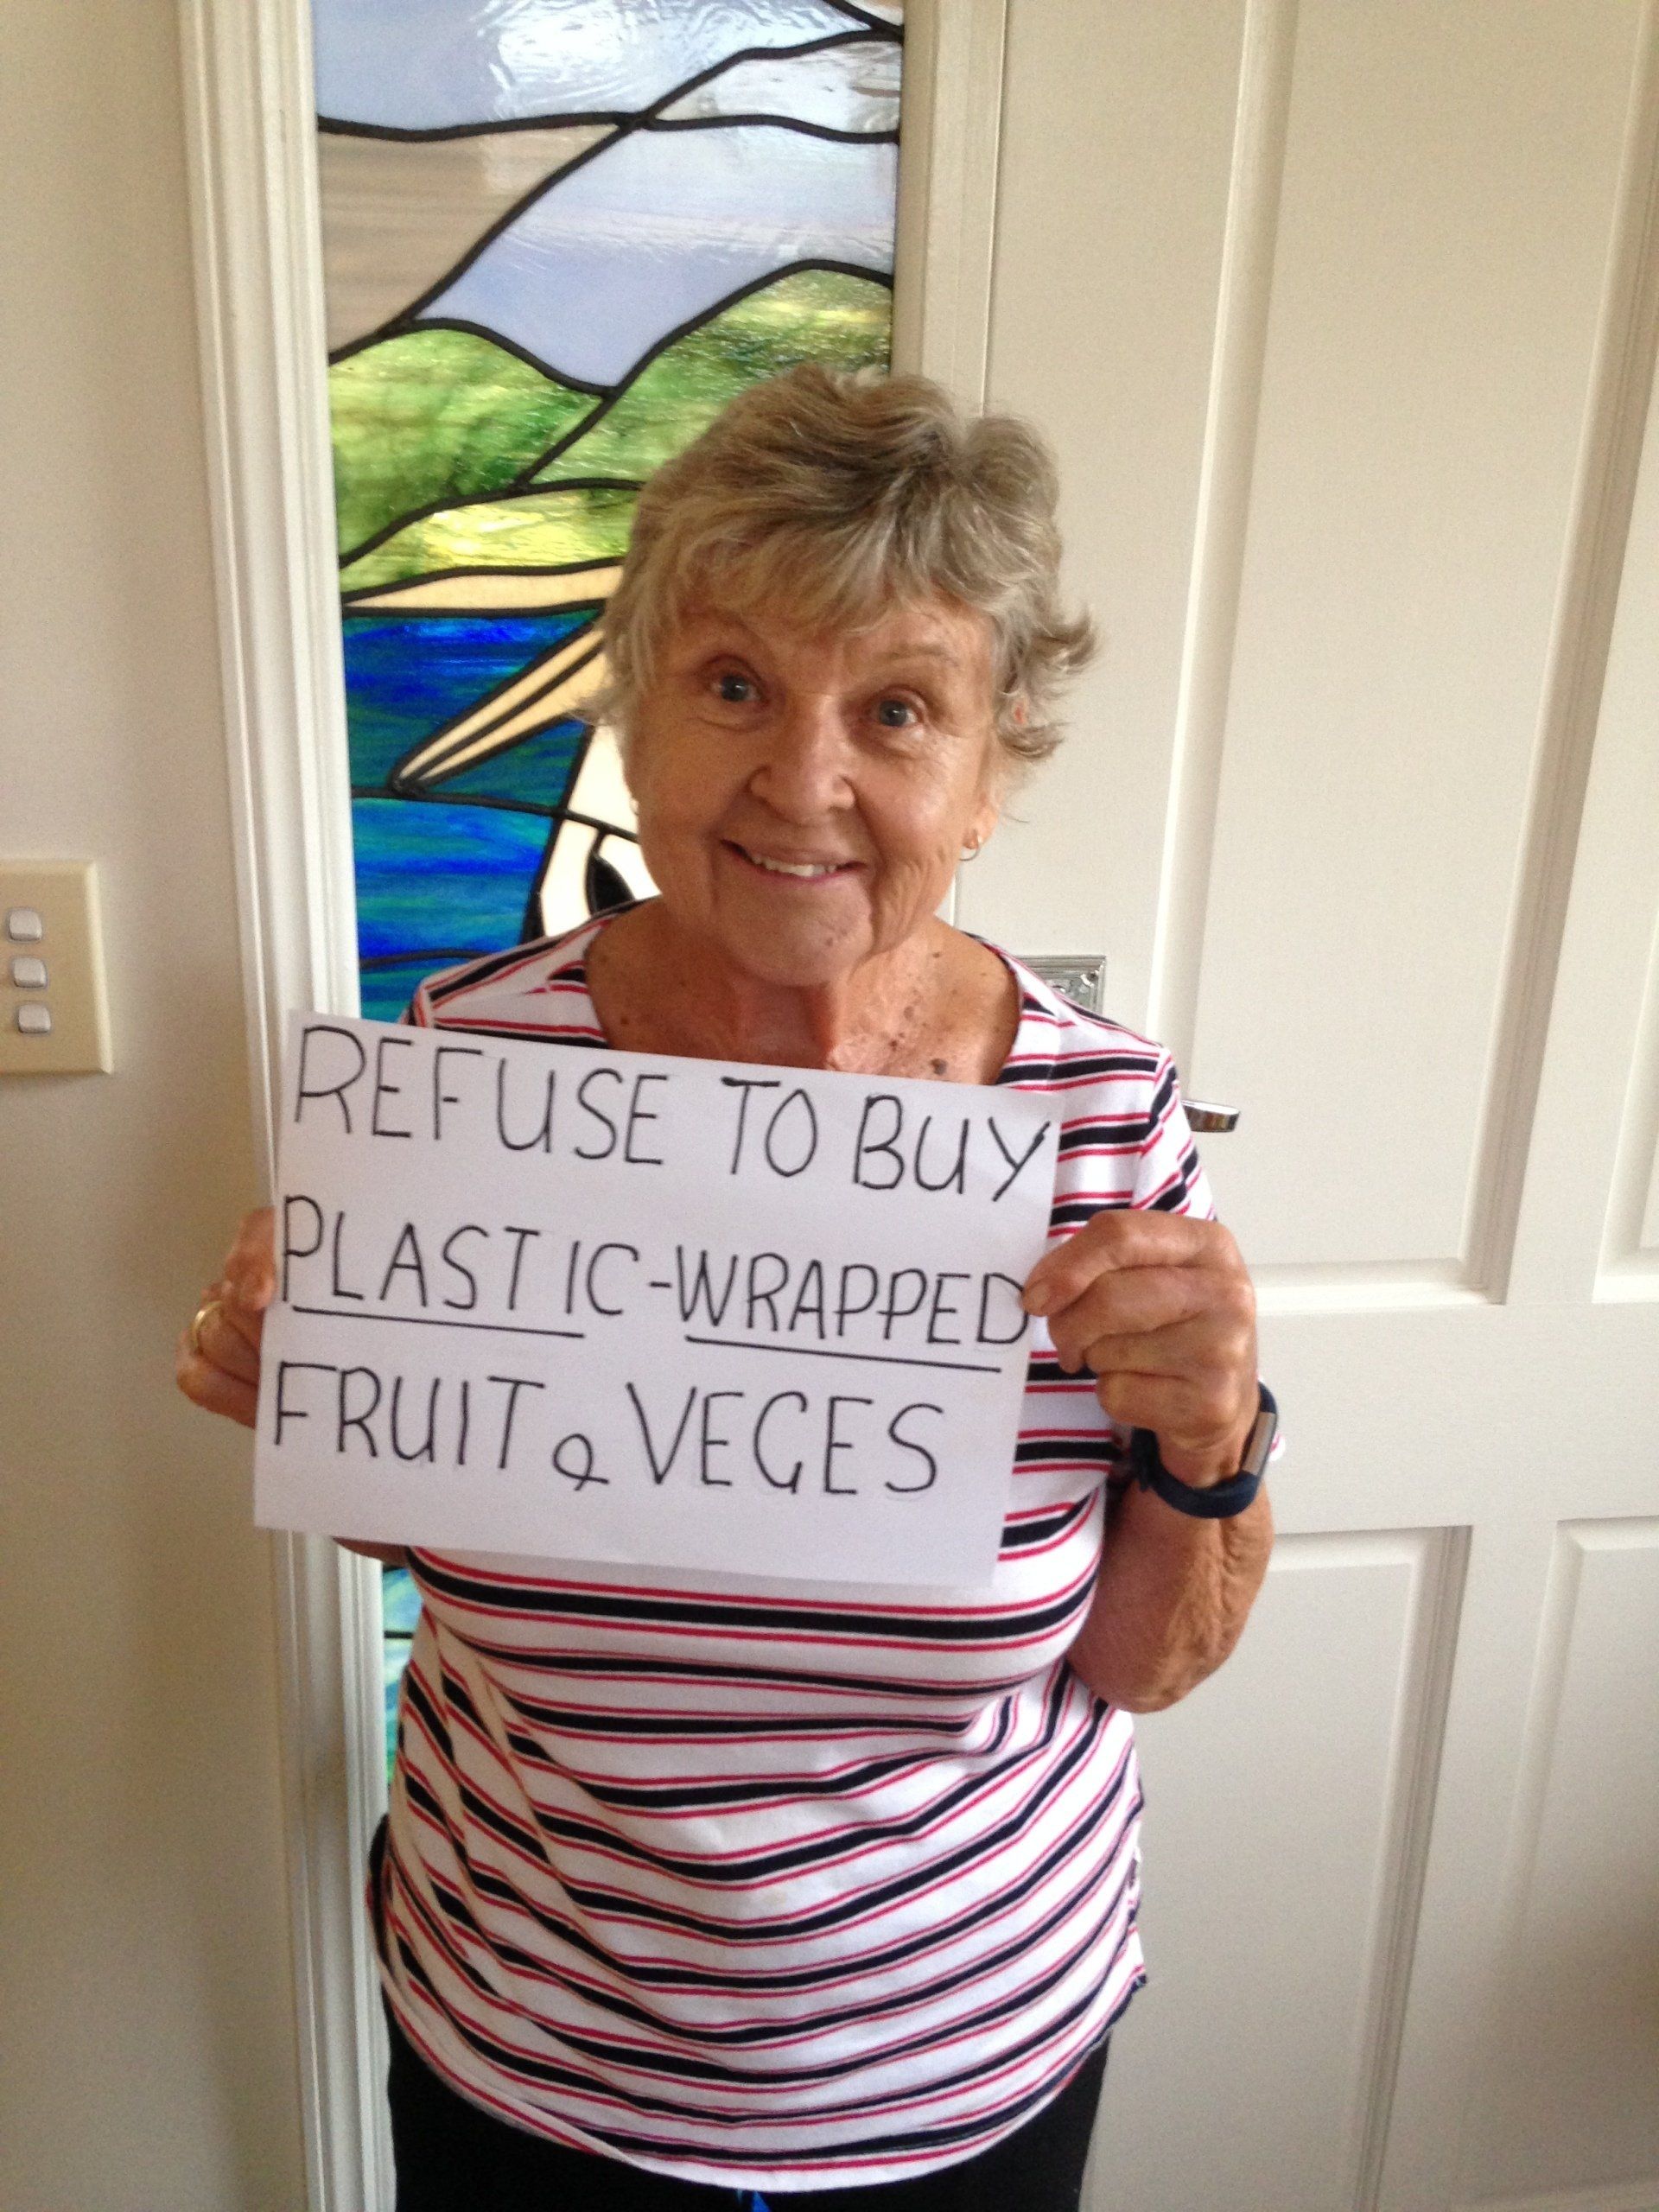 REFUSE TO BUY
PLASTIC-WRAPPED
FRUIT & VEGES